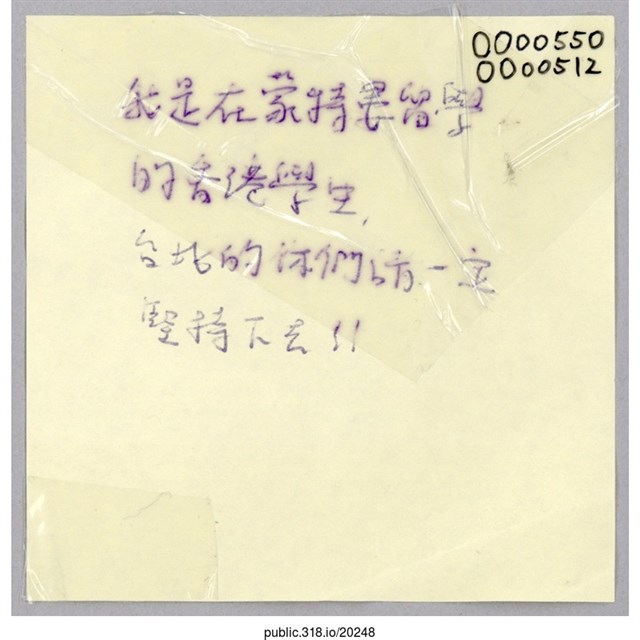 0000550
0000512
我是在蒙特婁留學
的香港學生,
台北的你們請一定
堅持下去!!
public.318.io/20248